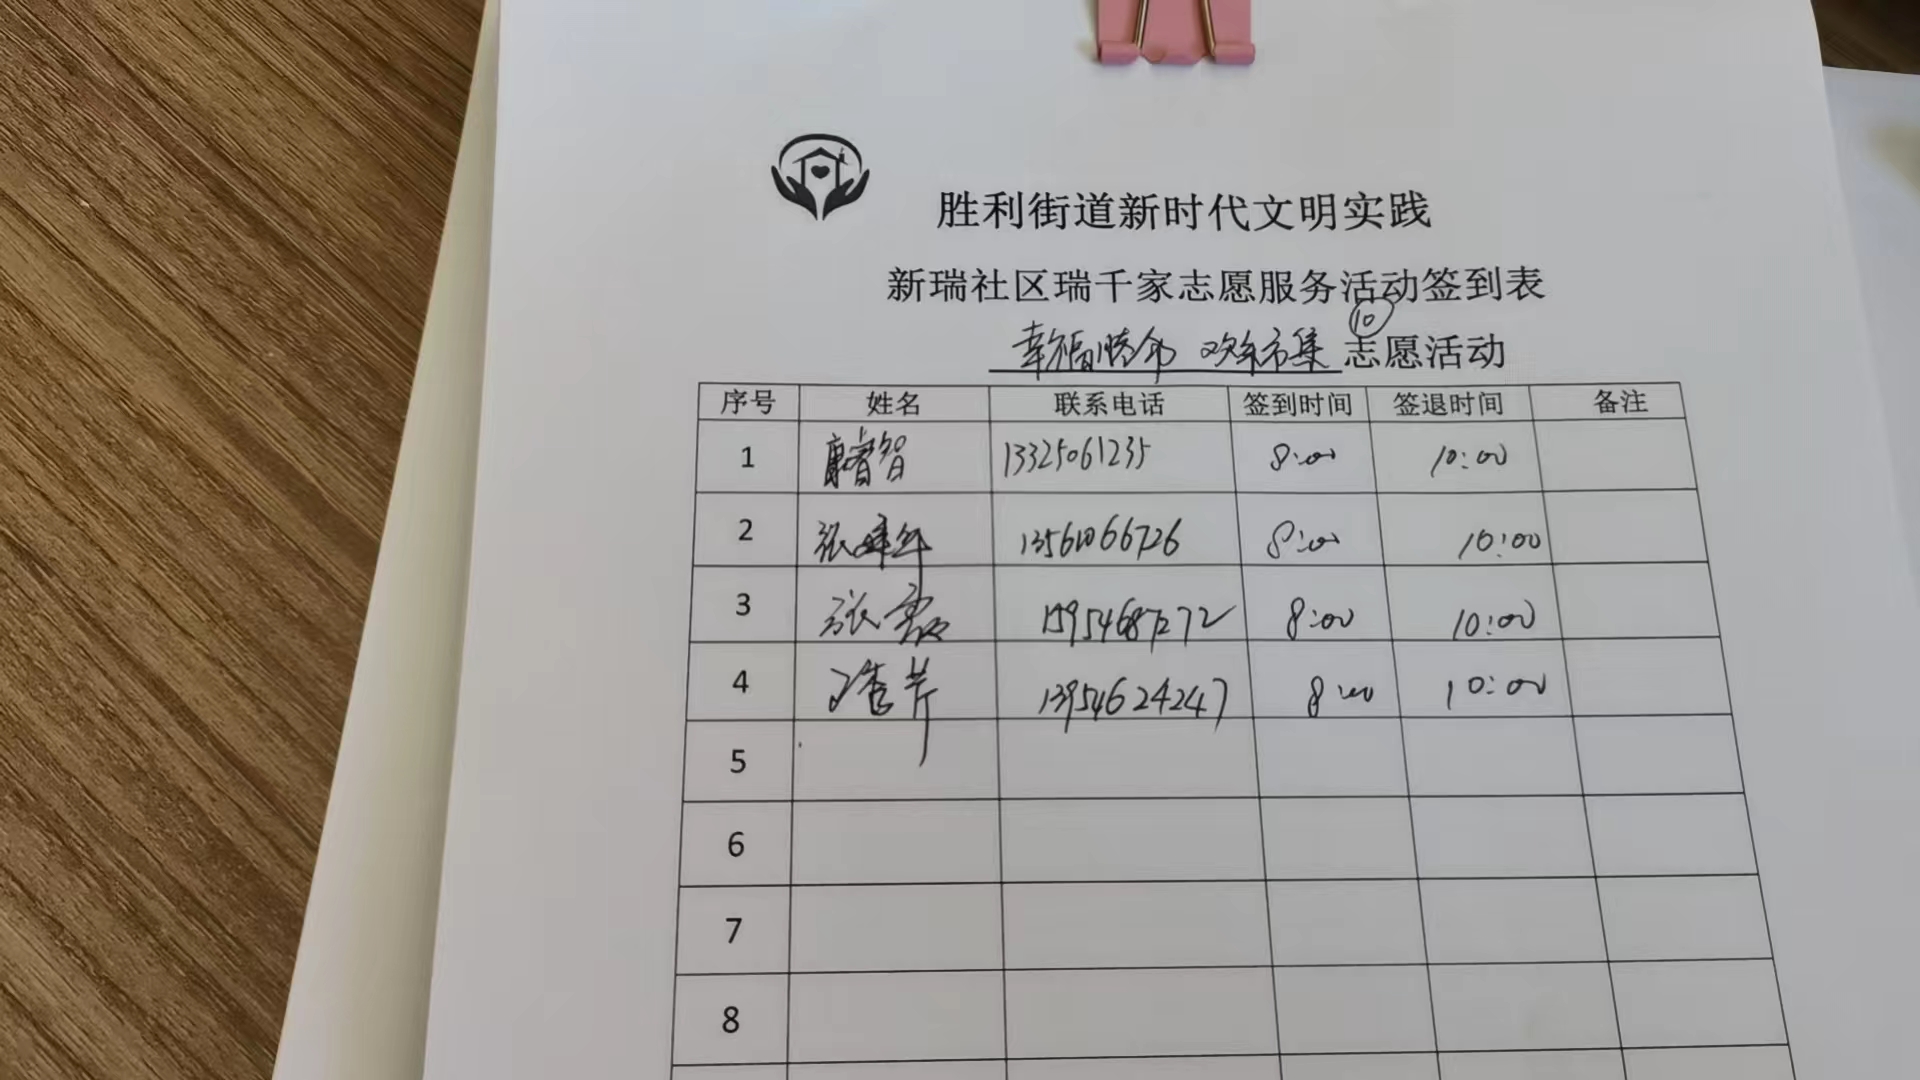 胜利街道新时代文明实践
新瑞社区瑞千家志愿服务活动签到表
⑩
幸福 欢乐市集 志愿活动
序号 姓名 联系电话 签到时间 签退时间 备注
1 康睿智 13325061235 8:00 10:00
2 张 13561066726 8:00 10:00
3 张磊 15954687272 8:00 10:00
4 13954624247 8:00 10:00
5
6
7
8